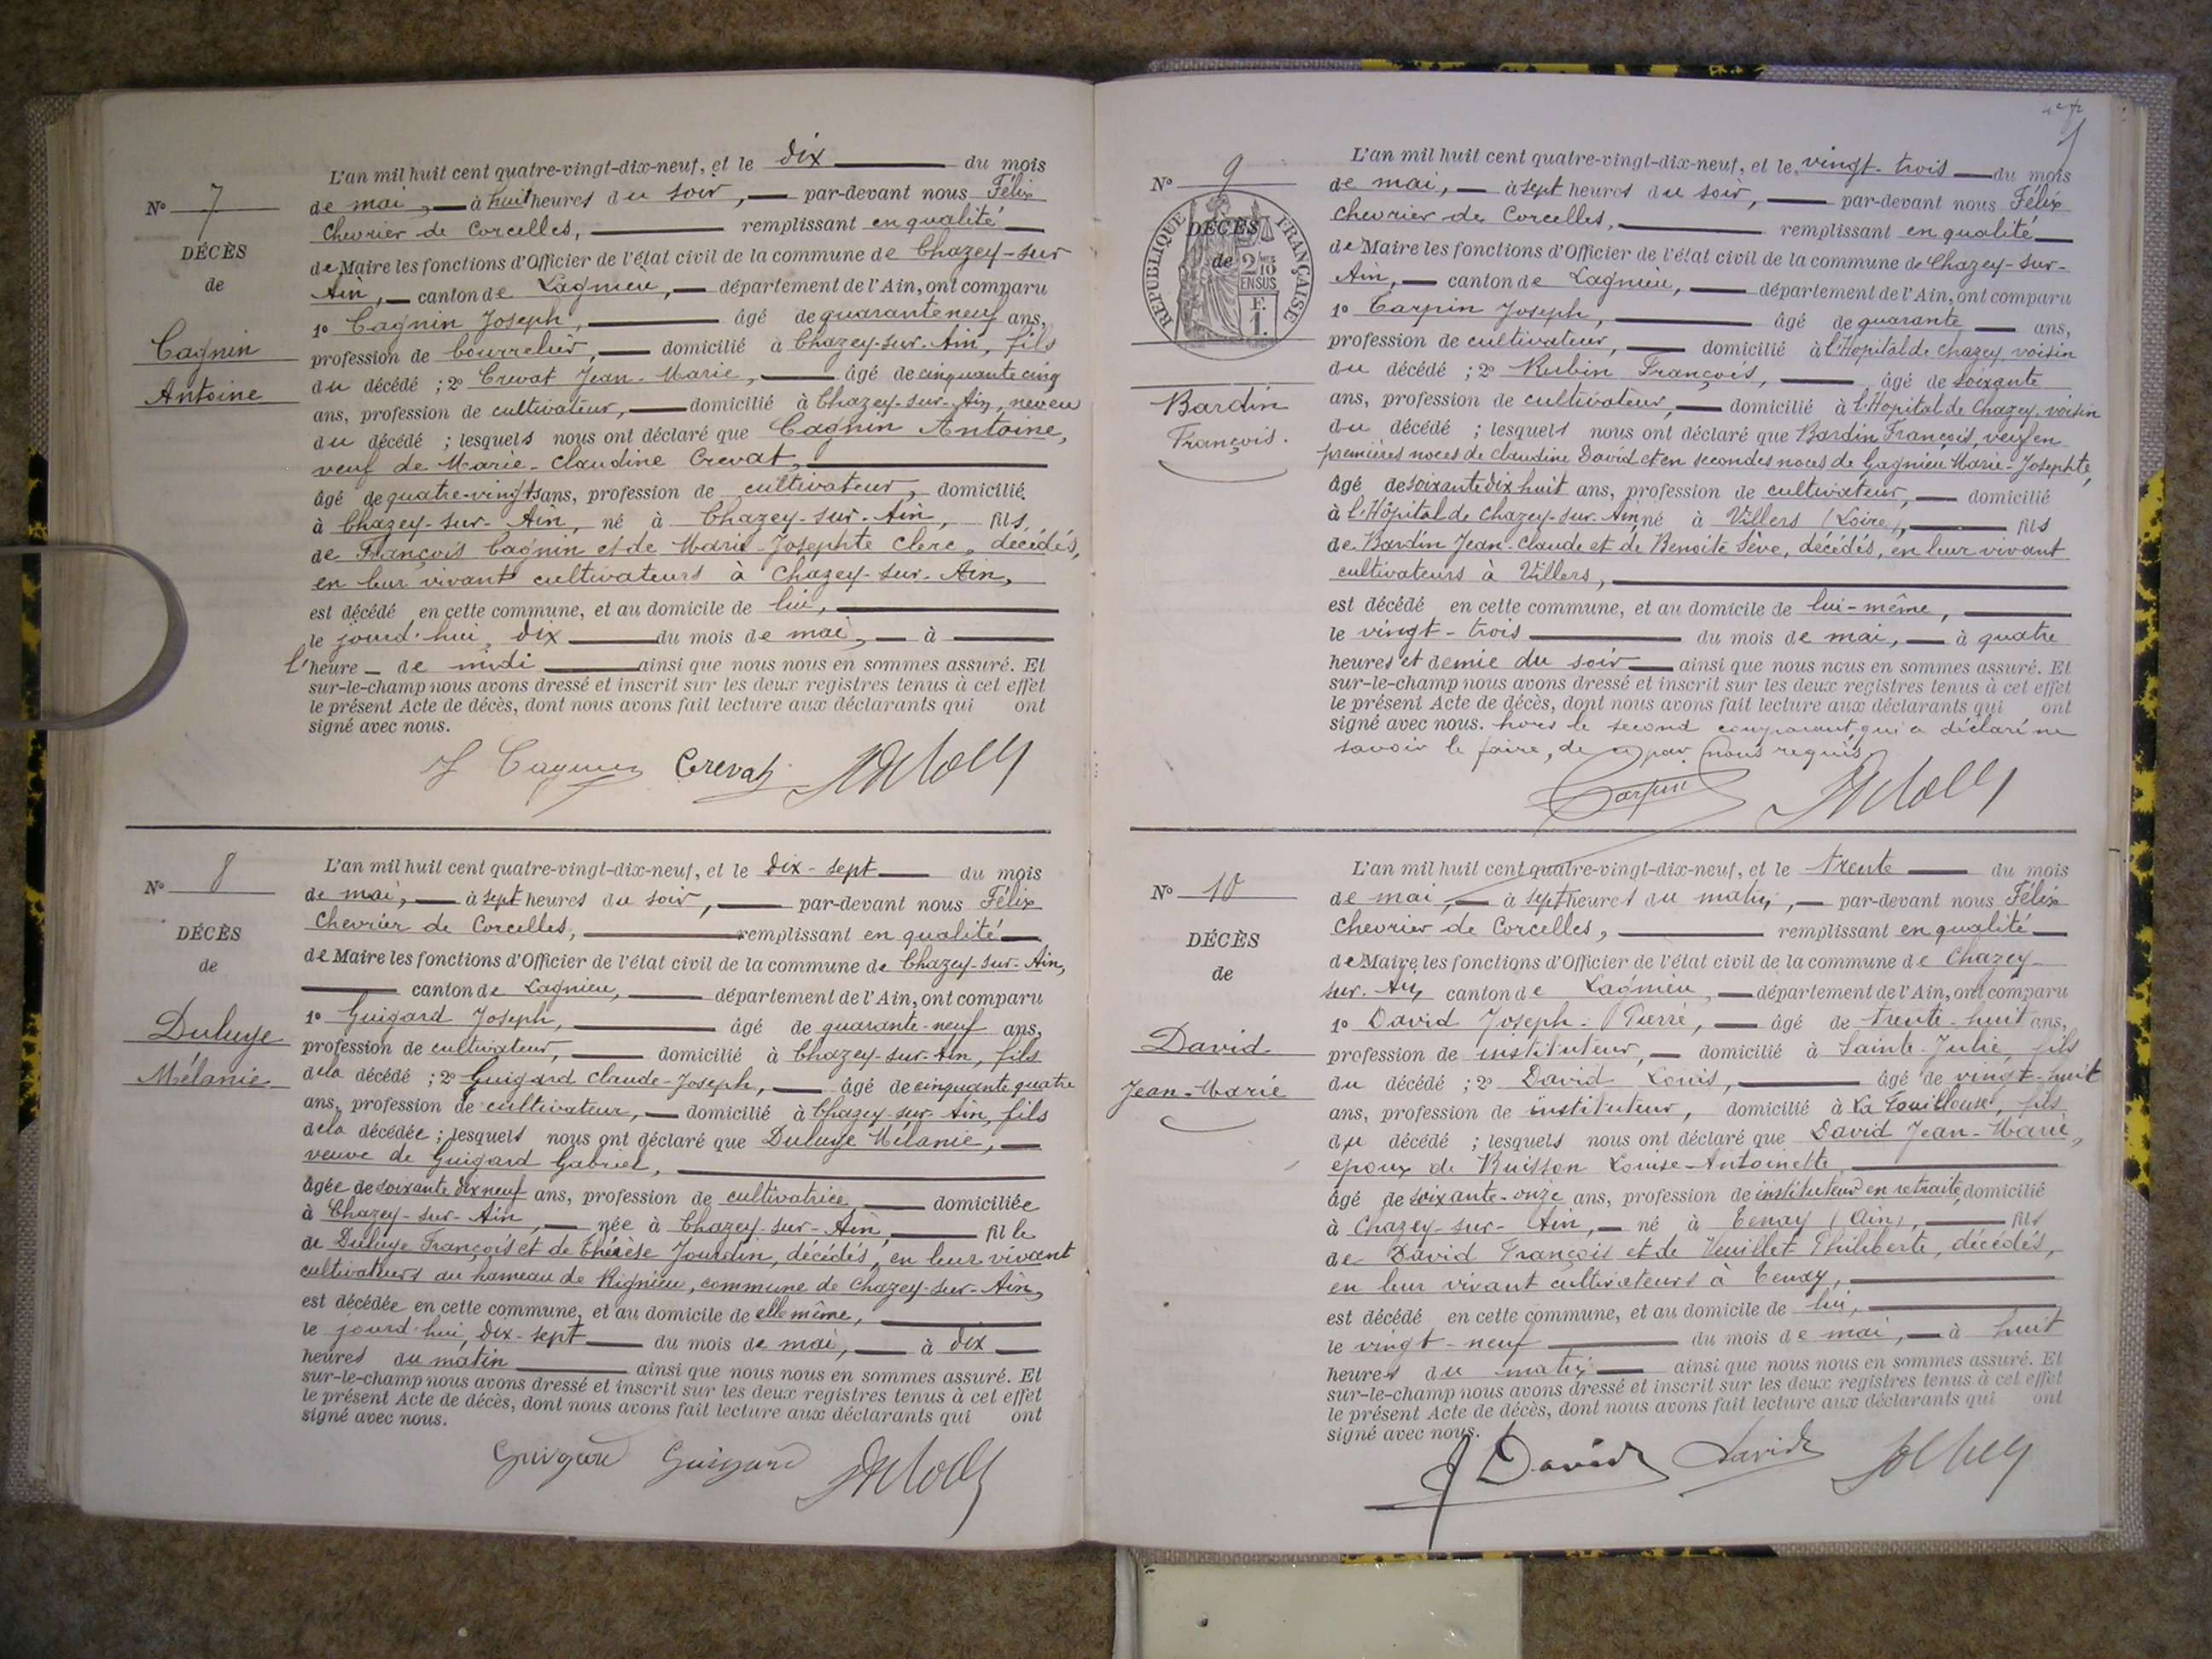 N° 7
DÉCÈS
de
Cagnin
Antoine
L'an mil huit cent quatre-vingt-dix-neuf, et le dix du mois
de mai, à huit heures du soir, par-devant nous Félix
Chevrier de Corcelles, remplissant en qualité
de Maire les fonctions d'Officier de l'état civil de la commune de Chazey-sur
Ain, canton de Lagnieu, département de l'Ain, ont comparu
1° Cagnin Joseph, âgé de quarante neuf ans,
profession de bourrelier, domicilié à Chazey-sur-Ain, fils
du décédé ; 2° Crevat Jean-Marie, âgé de cinquante cinq
ans, profession de cultivateur, domicilié à Chazey-sur-Ain, neveu
du décédé ; lesquels nous ont déclaré que Cagnin Antoine,
veuf de Marie-Claudine Crevat,
âgé de quatre-vingts ans, profession de cultivateur, domicilié
à Chazey-sur-Ain, né à Chazey-sur-Ain, fils
de François Cagnin et de Marie-Josephte Clerc, décédés,
en leur vivant cultivateurs à Chazey-sur-Ain,
est décédé en cette commune, et au domicile de lui,
le jourd'hui, dix du mois de mai, à
l'heure de midi ainsi que nous nous en sommes assuré. Et
sur-le-champ nous avons dressé et inscrit sur les deux registres tenus à cet effet
le présent Acte de décès, dont nous avons fait lecture aux déclarants qui ont
signé avec nous.
J Cagnin Crevat
N° 8
DÉCÈS
de
Duluye
Mélanie
L'an mil huit cent quatre-vingt-dix-neuf, et le dix-sept du mois
de mai, à sept heures du soir, par-devant nous Félix
Chevrier de Corcelles, remplissant en qualité
de Maire les fonctions d'Officier de l'état civil de la commune de Chazey-sur-Ain,
canton de Lagnieu, département de l'Ain, ont comparu
1° Guigard Joseph, âgé de quarante-neuf ans,
profession de cultivateur, domicilié à Chazey-sur-Ain, fils
de la décédé ; 2° Guigard Claude-Joseph, âgé de cinquante quatre
ans, profession de cultivateur, domicilié à Chazey-sur-Ain, fils
de la décédée ; lesquels nous ont déclaré que Duluye Mélanie,
veuve de Guigard Gabriel,
âgée de soixante dix neuf ans, profession de cultivatrice domiciliée
à Chazey-sur-Ain, née à Chazey-sur-Ain, fille
de Duluye François et de Thérèse Jourdin, décédés, en leur vivant
cultivateurs au hameau de Rignieu, commune de Chazey-sur-Ain,
est décédée en cette commune, et au domicile de elle même,
le jourd'hui, dix-sept du mois de mai, à dix
heures du matin ainsi que nous nous en sommes assuré. Et
sur-le-champ nous avons dressé et inscrit sur les deux registres tenus à cet effet
le présent Acte de décès, dont nous avons fait lecture aux déclarants qui ont
signé avec nous.
Guigard Guigard
N° 9
RÉPUBLIQUE FRANÇAISE
DÉCÈS
de
2/10 EN SUS
F. 1.
Bardin
François.
L'an mil huit cent quatre-vingt-dix-neuf, et le vingt-trois du mois
de mai, à sept heures du soir, par-devant nous Félix
Chevrier de Corcelles, remplissant en qualité
de Maire les fonctions d'Officier de l'état civil de la commune de Chazey-sur-
Ain, canton de Lagnieu, département de l'Ain, ont comparu
1° Carpin Joseph, âgé de quarante ans,
profession de cultivateur, domicilié à l'Hopital de Chazey, voisin
du décédé ; 2° Rubin François, âgé de soixante
ans, profession de cultivateur, domicilié à l'Hopital de Chazey, voisin
du décédé ; lesquels nous ont déclaré que Bardin François, veuf en
premières noces de Claudine David et en secondes noces de Gagnieu Marie-Josephte,
âgé de soixante dix huit ans, profession de cultivateur, domicilié
à l'Hôpital de Chazey-sur-Ain, né à Villers (Loire), fils
de Bardin Jean-Claude et de Benoite Sève, décédés, en leur vivant
cultivateurs à Villers,
est décédé en cette commune, et au domicile de lui-même,
le vingt-trois du mois de mai, à quatre
heures et demie du soir ainsi que nous nous en sommes assuré. Et
sur-le-champ nous avons dressé et inscrit sur les deux registres tenus à cet effet
le présent Acte de décès, dont nous avons fait lecture aux déclarants qui ont
signé avec nous. hors le second comparant, qui a déclaré ne
savoir le faire, de ce par nous requis
Carpin
N° 10
DÉCÈS
de
David
Jean-Marie
L'an mil huit cent quatre-vingt-dix-neuf, et le trente du mois
de mai, à sept heures du matin, par-devant nous Félix
Chevrier de Corcelles, remplissant en qualité
de Maire les fonctions d'Officier de l'état civil de la commune de Chazey-
sur-Ain, canton de Lagnieu, département de l'Ain, ont comparu
1° David Joseph-Pierre, âgé de trente-huit ans,
profession de instituteur, domicilié à Sainte-Julie, fils
du décédé ; 2° David Louis, âgé de vingt-huit
ans, profession de instituteur, domicilié à La Touilleuse, fils
du décédé ; lesquels nous ont déclaré que David Jean-Marie,
époux de Buisson Louise-Antoinette,
âgé de soixante-onze ans, profession de instituteur en retraite, domicilié
à Chazey-sur-Ain, né à Tenay (Ain), fils
de David François et de Veuillet Philiberte, décédés,
en leur vivant cultivateurs à Tenay,
est décédé en cette commune, et au domicile de lui,
le vingt-neuf du mois de mai, à huit
heures du matin ainsi que nous nous en sommes assuré. Et
sur-le-champ nous avons dressé et inscrit sur les deux registres tenus à cet effet
le présent Acte de décès, dont nous avons fait lecture aux déclarants qui ont
signé avec nous.
J David David